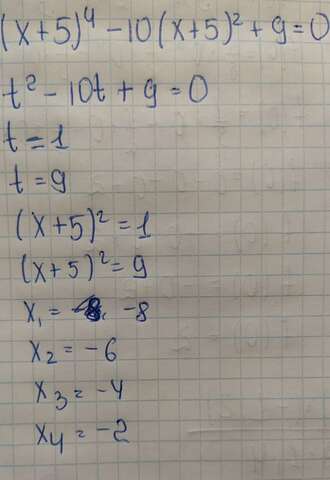 (x+5)⁴ - 10(x+5)² + 9 = 0
t² - 10t + 9 = 0
t = 1
t = 9
(x+5)² = 1
(x+5)² = 9
x₁ = -8
x₂ = -6
x₃ = -4
x₄ = -2